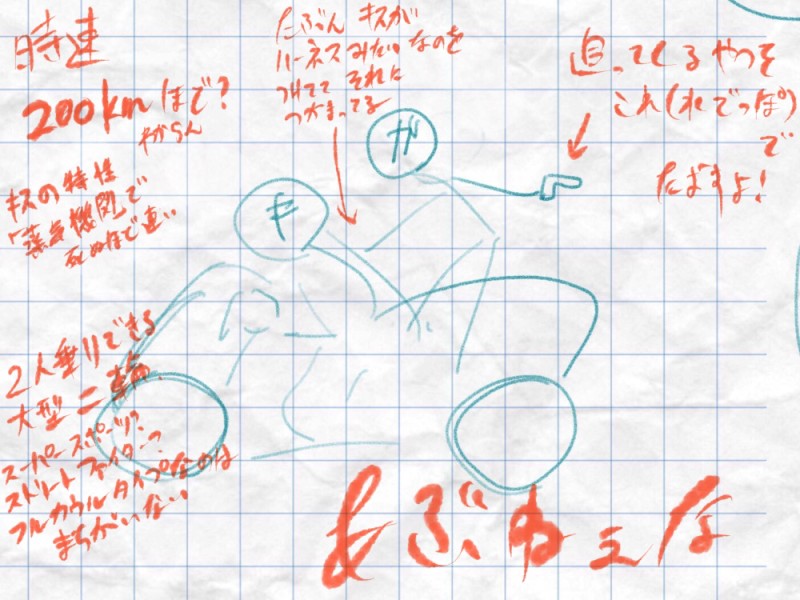 時速
200kmまで?
わからん
キスの特性
「蒸気機関」で
死ぬほど速い
たぶん キスが
ハーネスみたいなのを
つけてて それに
つかまってる
追ってくるやつを
これ(れでっぽ)
で
たおすよ!
ガ
キ
2人乗りできる
大型二輪
スーパースポーツ?
ストリートファイター?
フルカウルタイプなのは
まちがいない
あぶねぇな